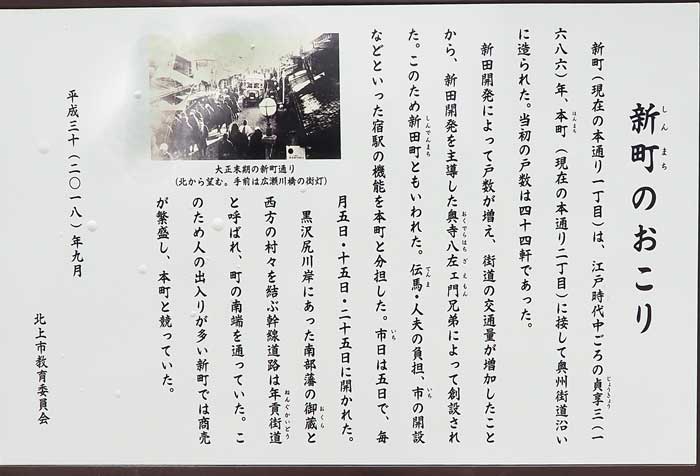 新町のおこり
しんまち
新町（現在の本通り一丁目）は、江戸時代中ごろの貞享三（一
じょうきょう
六八六）年、本町（現在の本通り二丁目）に接して奥州街道沿い
ほんまち
に造られた。当初の戸数は四十四軒であった。
新田開発によって戸数が増え、街道の交通量が増加したこと
から、新田開発を主導した奥寺八左ェ門兄弟によって創設され
おくでらはちざえもん
た。このため新田町ともいわれた。伝馬・人夫の負担、市の開設
しんでんまち
てんま
いち
などといった宿駅の機能を本町と分担した。市日は五日で、毎
いち
月五日・十五日・二十五日に開かれた。
黒沢尻川岸にあった南部藩の御蔵と
おくら
西方の村々を結ぶ幹線道路は年貢街道
ねんぐかいどう
と呼ばれ、町の南端を通っていた。こ
のため人の出入りが多い新町では商売
が繁盛し、本町と競っていた。
大正末期の新町通り
（北から望む。手前は広瀬川橋の街灯）
平成三十（二〇一八）年九月
北上市教育委員会